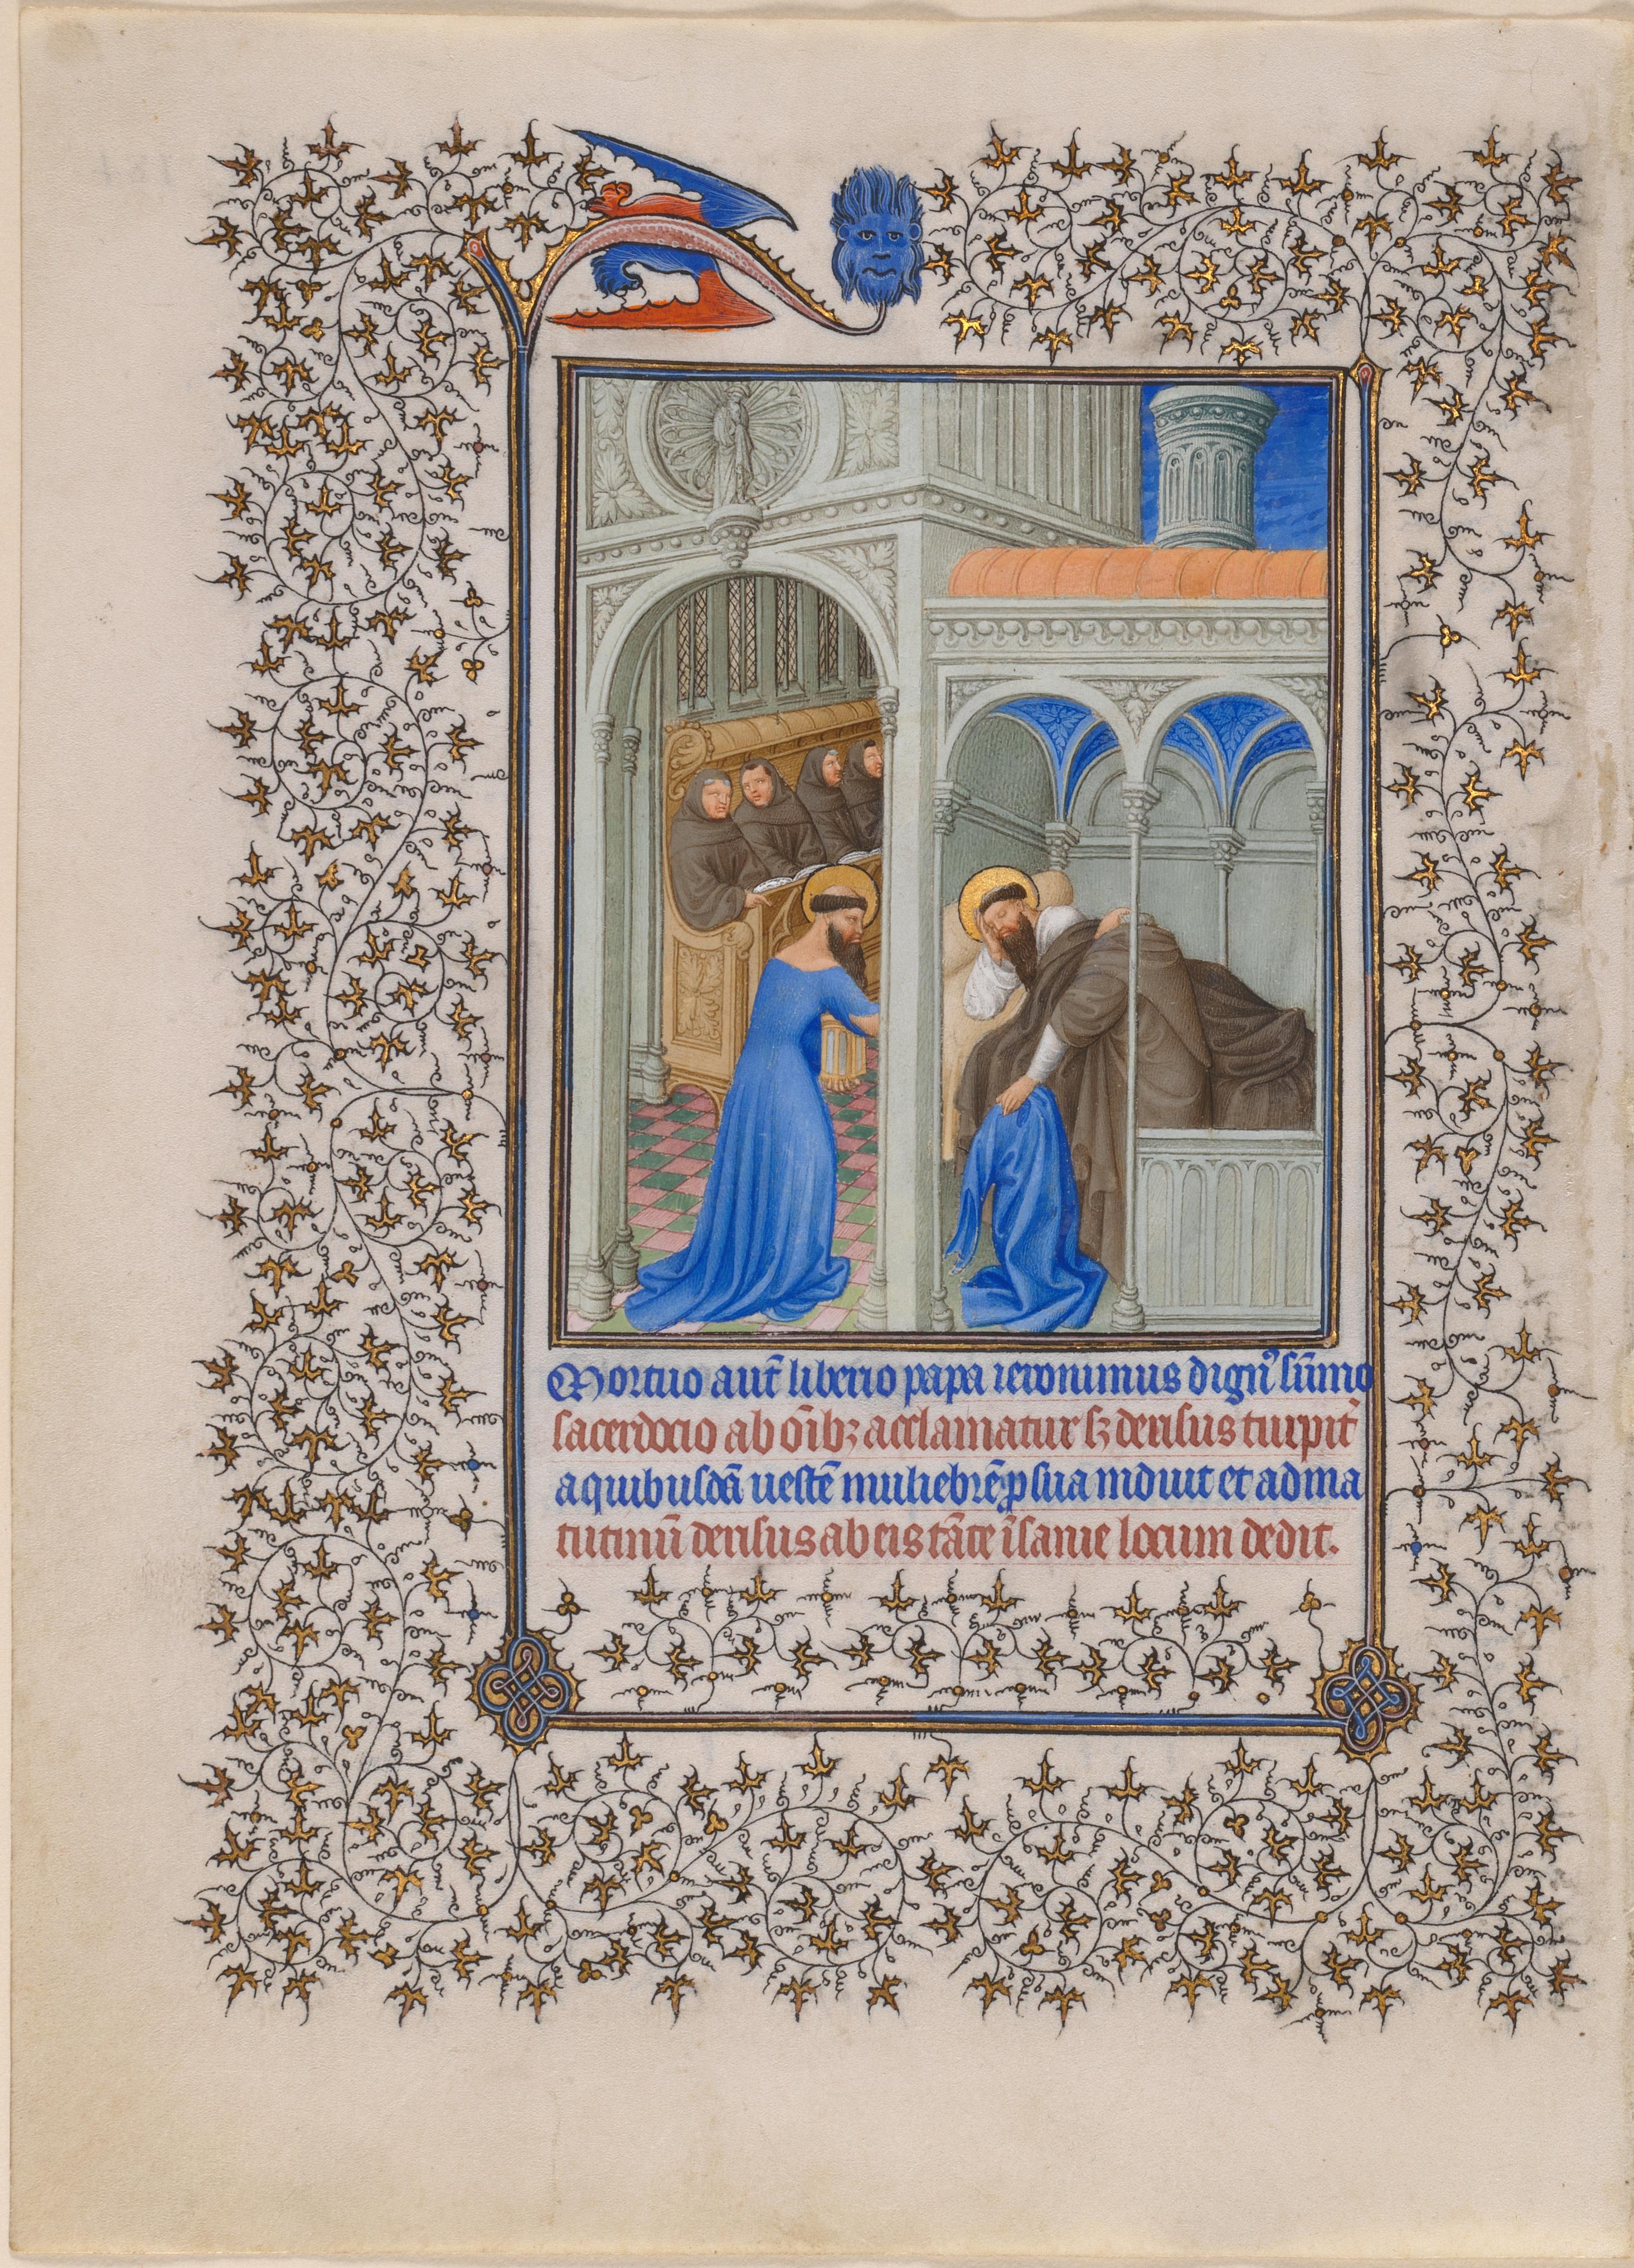 Mortuo aut̄ liberio papa ieronimus dignꝰ sūmo
sacerdocio ab oībꝫ acclamatur sꝫ derisus turpit̉
a quibusdā uestē muliebrē ꝓ sua induit et ad ma
tutinū derisus ab eis tāte īsanie locum dedit.